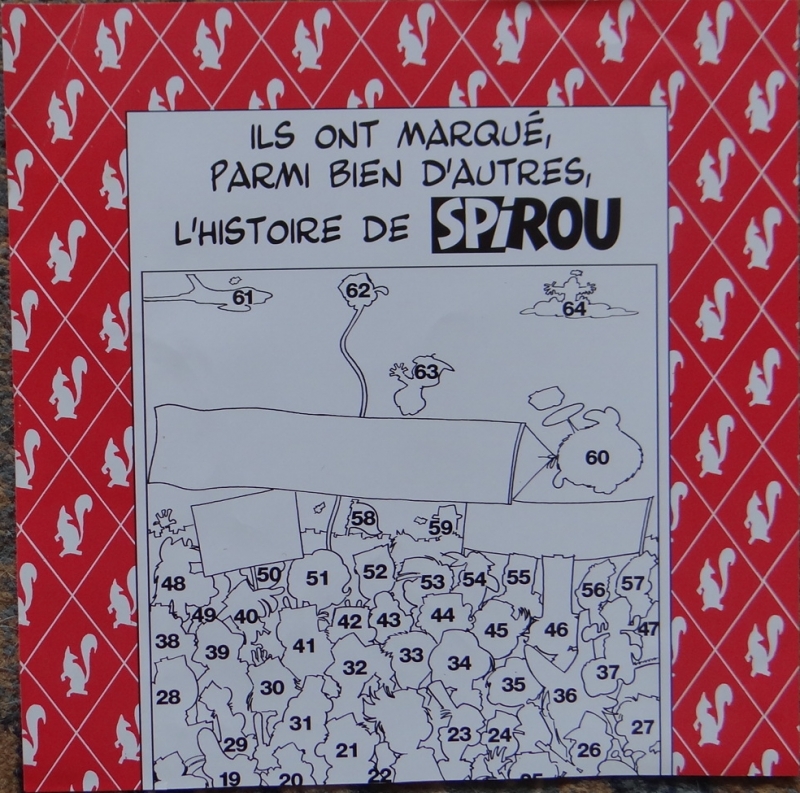 ILS ONT MARQUÉ,
PARMI BIEN D'AUTRES,
L'HISTOIRE DE SPiROU
61
62
64
63
60
58
59
48
50
51
52
53
54
55
56
57
49
40
42
43
44
45
46
47
38
39
41
32
33
34
37
28
30
35
36
31
29
21
23
24
26
27
19
20
22
25